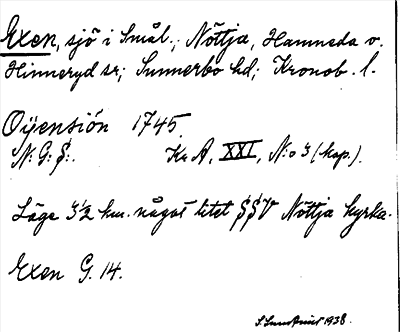 Exen, sjö i Smål.; Nöttja, Hamneda o.
Hinneryd sr; Sunnerbo hd; Kronob. l.
Oÿensiön 1745.
N: G: S:. Kr A, XXI, N:o 3 (kap.).
Läge 3½ km. något litet SSV Nöttja kyrka.
Exen G. 14.
1938.